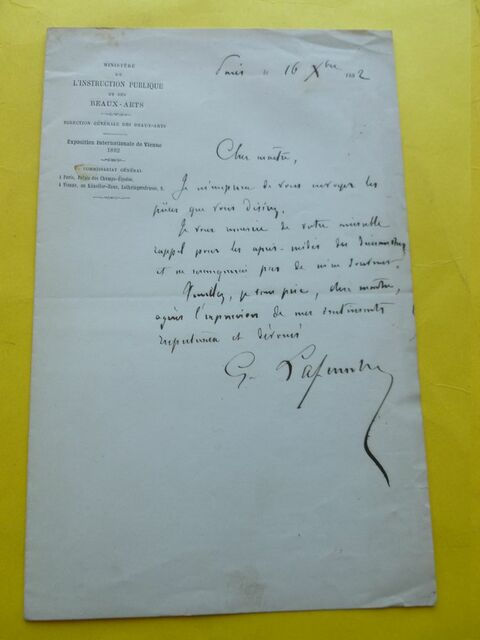 MINISTÈRE
DE
L'INSTRUCTION PUBLIQUE
ET DES
BEAUX-ARTS
DIRECTION GÉNÉRALE DES BEAUX-ARTS
Exposition Internationale de Vienne
1882
COMMISSARIAT GÉNÉRAL
à Paris, Palais des Champs-Élysées,
à Vienne, au Künstler-Haus, Lothringerstrasse, 9.
Paris le 16 Xbre 1882
Cher maître,
Je m'empresse de vous envoyer les
pièces que vous désirez.
Je vous remercie de votre aimable
rappel pour les après-midis du
et ne manquerai pas de m'en souvenir.
Veuillez, je vous prie, cher maître,
agréer l'expression de mes sentiments
respectueux et dévoués
G. Lafenestre